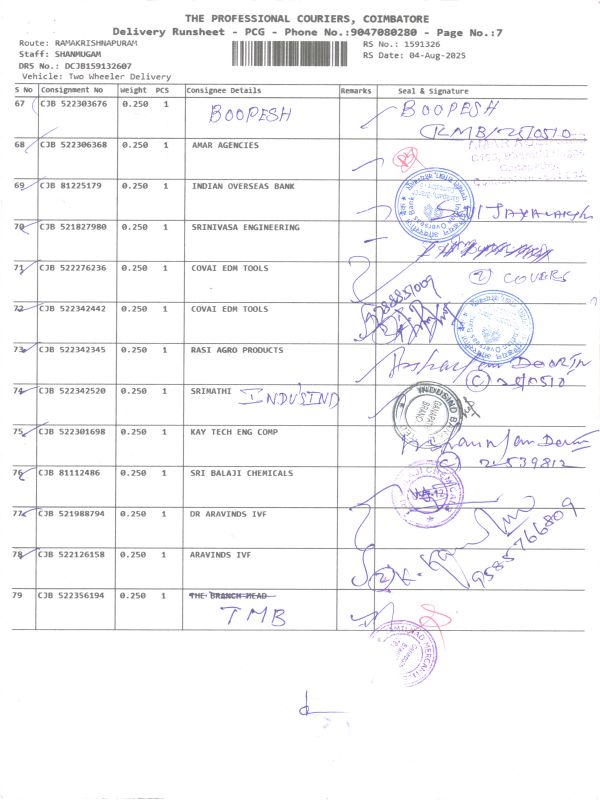 THE PROFESSIONAL COURIERS, COIMBATORE
Delivery Runsheet - PCG - Phone No.:9047080280 - Page No.:7
Route: RAMAKRISHNAPURAM
Staff: SHANMUGAM
DRS No.: DCJB159132607
Vehicle: Two Wheeler Delivery
RS No.: 1591326
RS Date: 04-Aug-2025
S No Consignment No Weight PCS Consignee Details Remarks Seal & Signature
67 CJB 522303676 0.250 1 BOOPESH BOOPESH
68 CJB 522306368 0.250 1 AMAR AGENCIES
69 CJB 81225179 0.250 1 INDIAN OVERSEAS BANK
70 CJB 521827980 0.250 1 SRINIVASA ENGINEERING
71 CJB 522276236 0.250 1 COVAI EDM TOOLS 2 COVERS
72 CJB 522342442 0.250 1 COVAI EDM TOOLS
73 CJB 522342345 0.250 1 RASI AGRO PRODUCTS
74 CJB 522342520 0.250 1 SRIMATHI INDUSIND
75 CJB 522301698 0.250 1 KAY TECH ENG COMP
76 CJB 81112486 0.250 1 SRI BALAJI CHEMICALS
77 CJB 521988794 0.250 1 DR ARAVINDS IVF
78 CJB 522126158 0.250 1 ARAVINDS IVF 9585766809
79 CJB 522356194 0.250 1 THE BRANCH HEAD
TMB